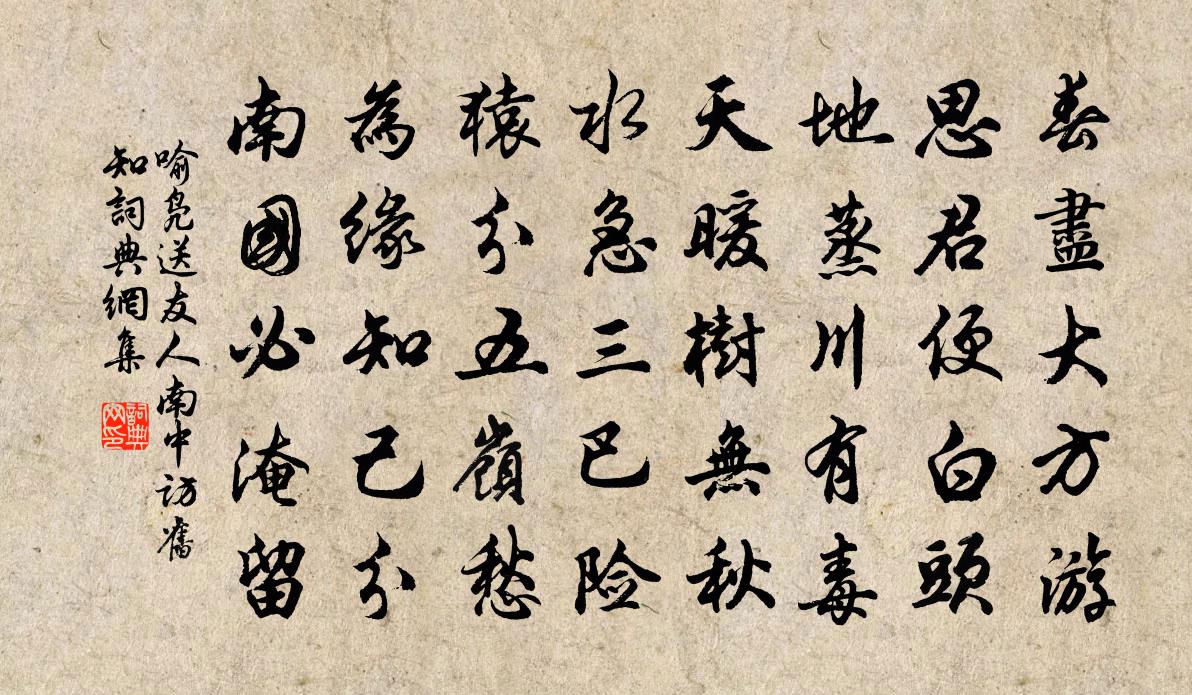 春盡大方游
思君便白頭
地蒸川有毒
天暖樹無秋
水急三巴险
猿分五嶺愁
為緣知己分
南國必淹留
喻凫送友人南中訪舊
知詞典網集
詞典网印